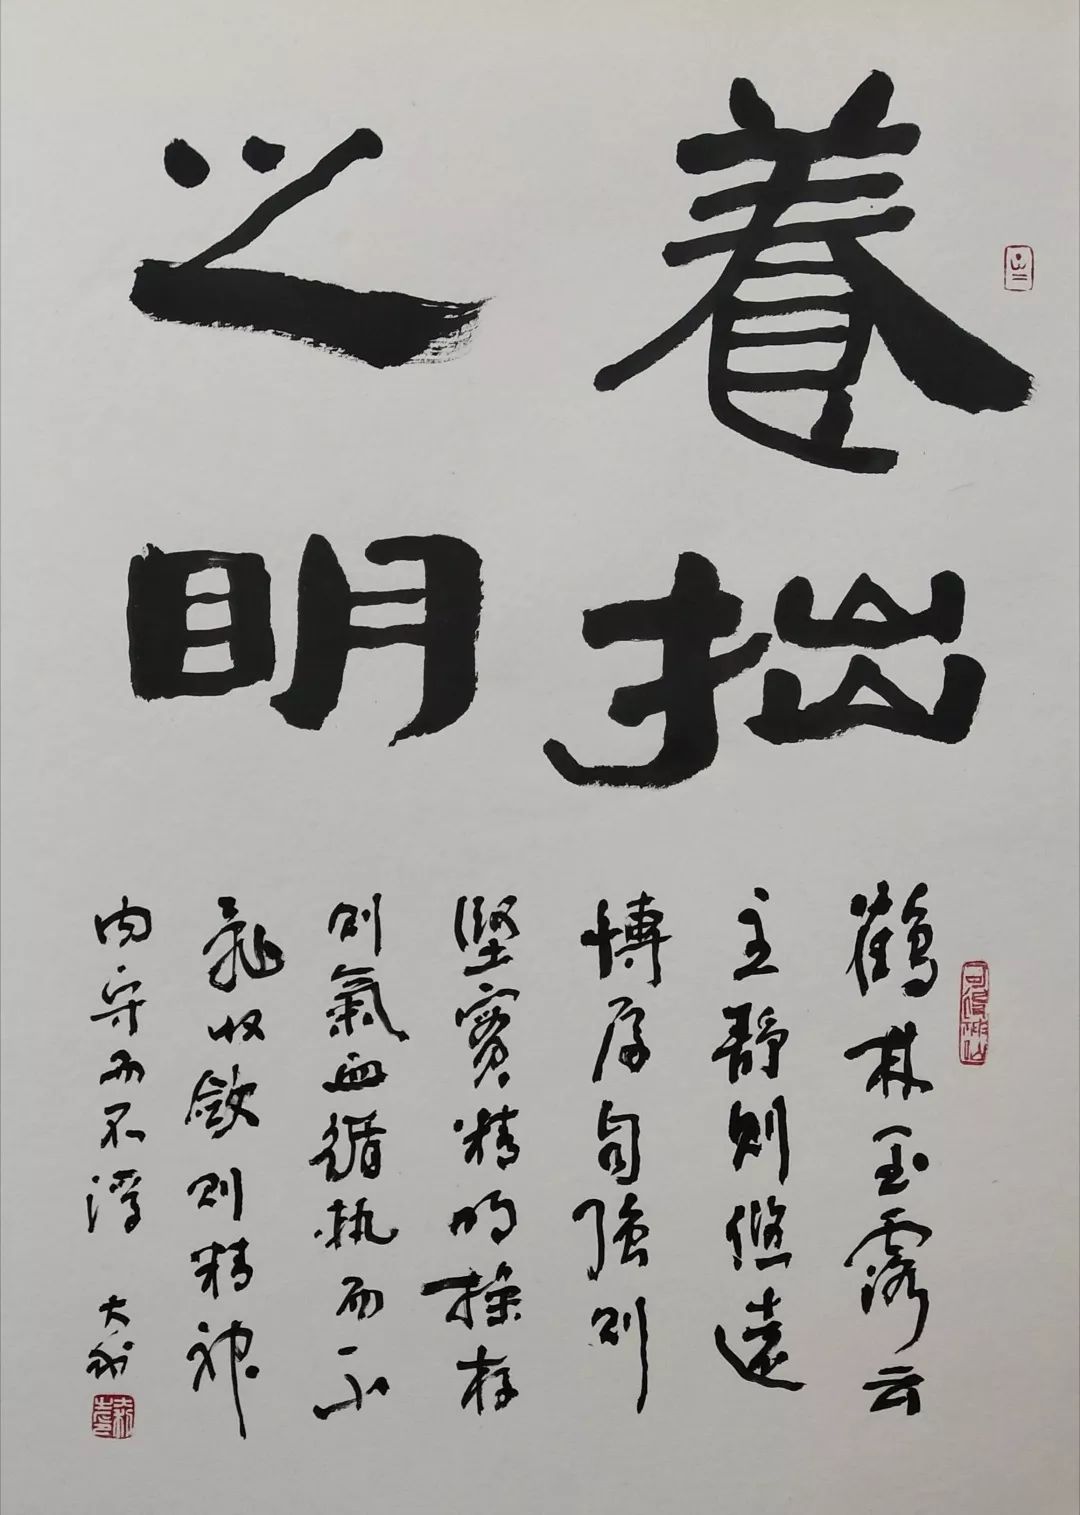 養拙
之明
鶴林玉露云
主靜則悠遠
博厚自強則
堅實精明操存
則氣血循执而不
亂收斂則精神
內守而不浮 大